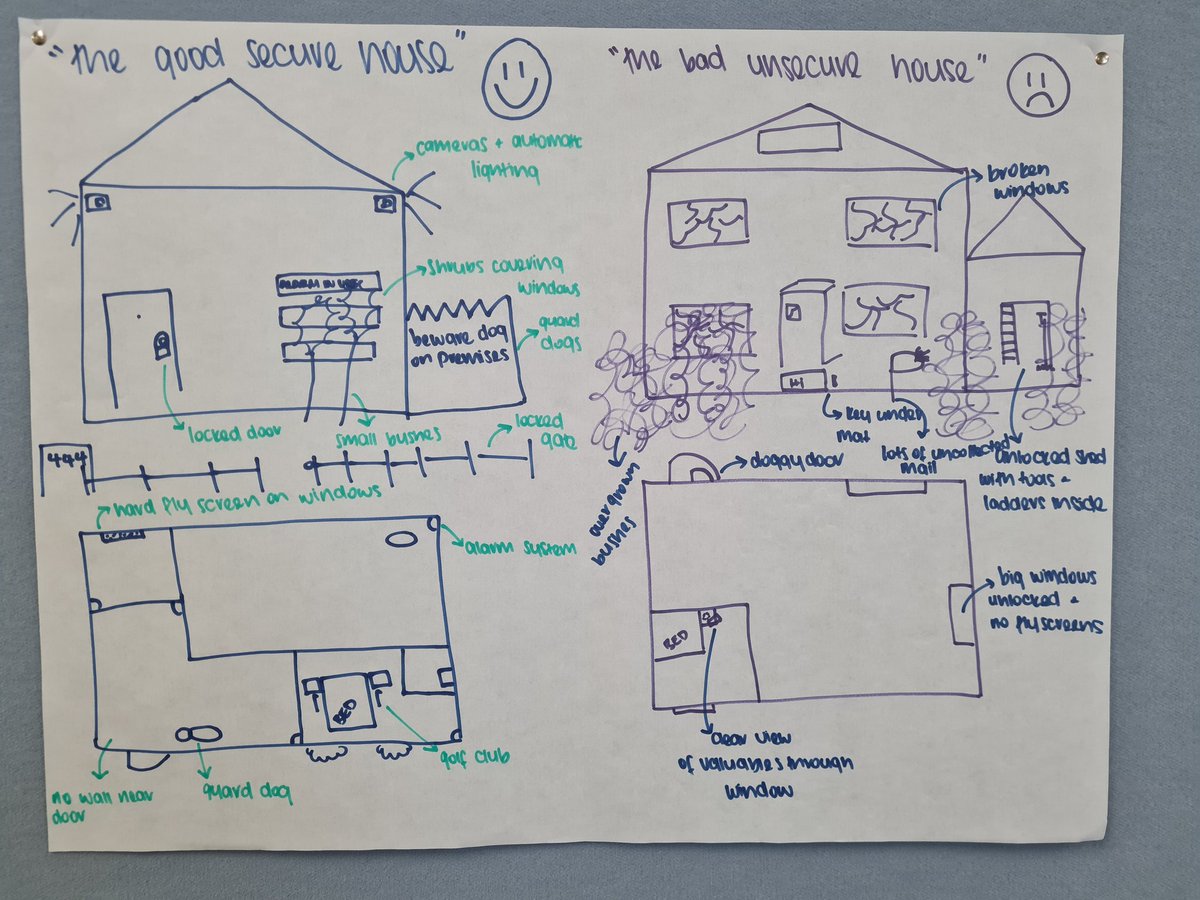 "the good secure house"
cameras + automatic
lighting
shrubs covering
windows
beware dog
on premises
guard
dogs
locked door
small bushes
locked
gate
444
hard fly screen on windows
alarm system
BED
golf club
guard dog
no wall near
door
"the bad unsecure house"
broken
windows
key under
mat
lots of uncollected
mail
unlocked shed
with tools +
ladders inside
overgrown
bushes
doggy door
big windows
unlocked +
no flyscreens
BED
clear view
of valuables through
window